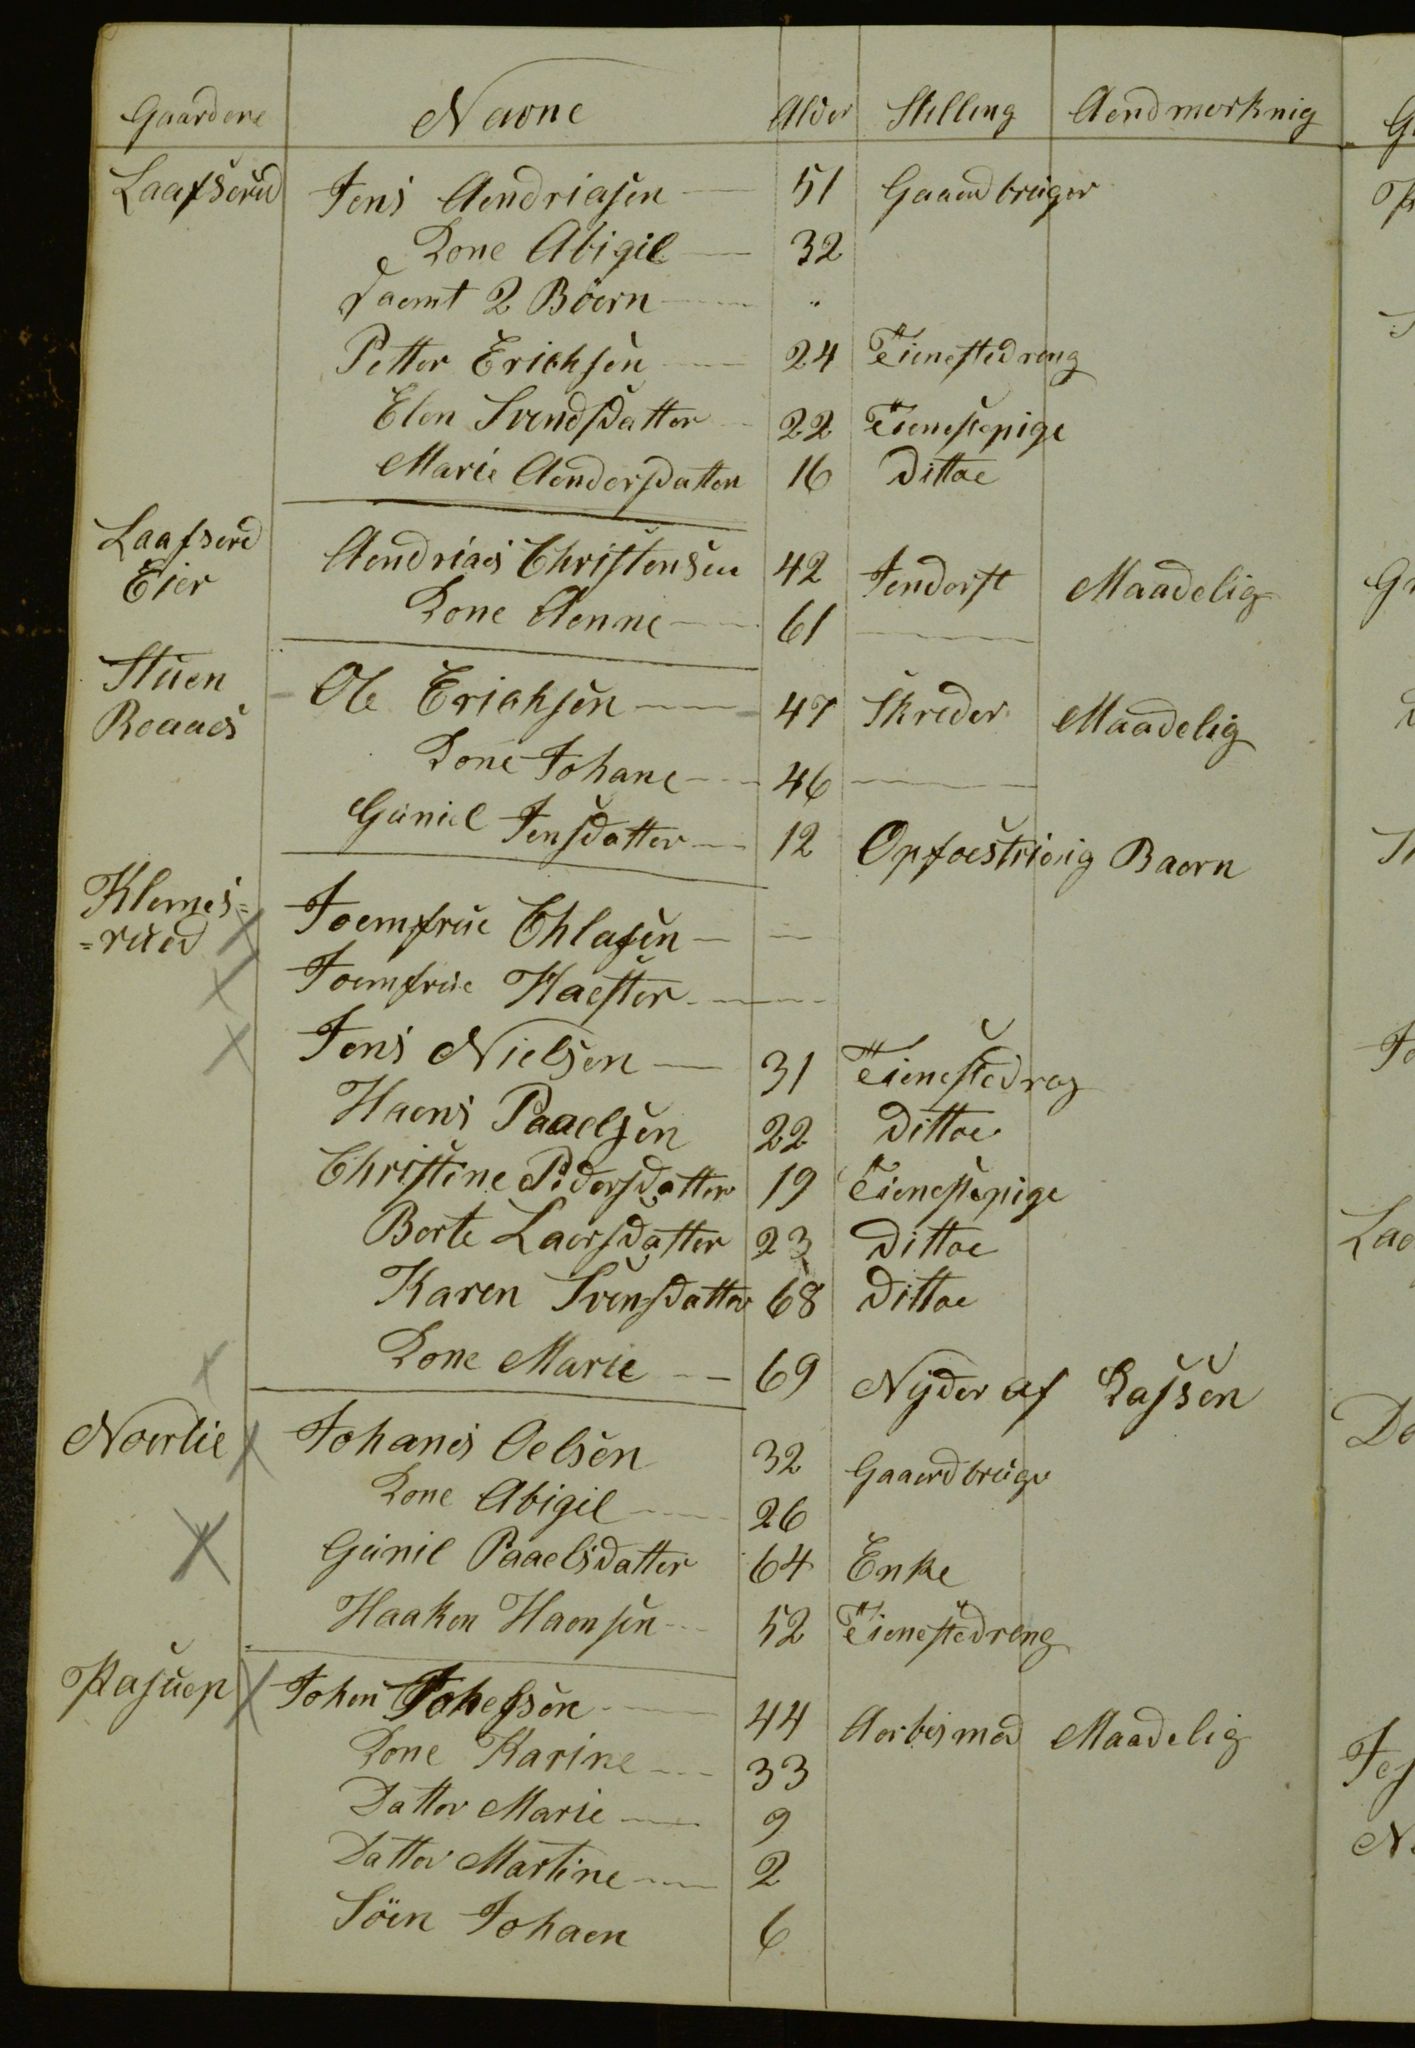 Gaardene Navne Alder Stelling Aendmerknig
Laafserud Jens Aendriasen 51 Gaaerdbruger
Kone Abigil 32
Saemt 2 Böern "
Petter Erichsen 24 Tienestedreng
Elen Svendsdatter 22 Tienestepige
Marie Aendersdatter 16 Dittoe
Laafserd Aendrias Christensen 42 Jenderst Maadelig
Eier Kone Aenne 61
Stuen Ole Erichsen 47 Skreder Maadelig
Roaaes Kone Johane 46
Guniel Jensdatter 12 Opfoestrienig Baern
Klemes= Joemfrue Ehlasen
=rued Joemfrue Haester
Jens Nielsen 31 Tienestedrag
Haens Paaelsen 22 Dittoe
Christine Pedersdatter 19 Tienestepige
Berte Laersdatter 23 Dittoe
Karen Svensdatter 68 Dittoe
Kone Marie 69 Nyder af Kassen
Noerlie Johanes Oelsen 32 Gaaerdbruger
Kone Abigil 26
Gunil Paaelsdatter 64 Enke
Haaken Haensen 52 Tienestedreng
Johen Johessen 44 Aerbesmed Maadelig
Kone Karine 33
Datter Marie 9
Datter Martine 2
Söen Johaen 6